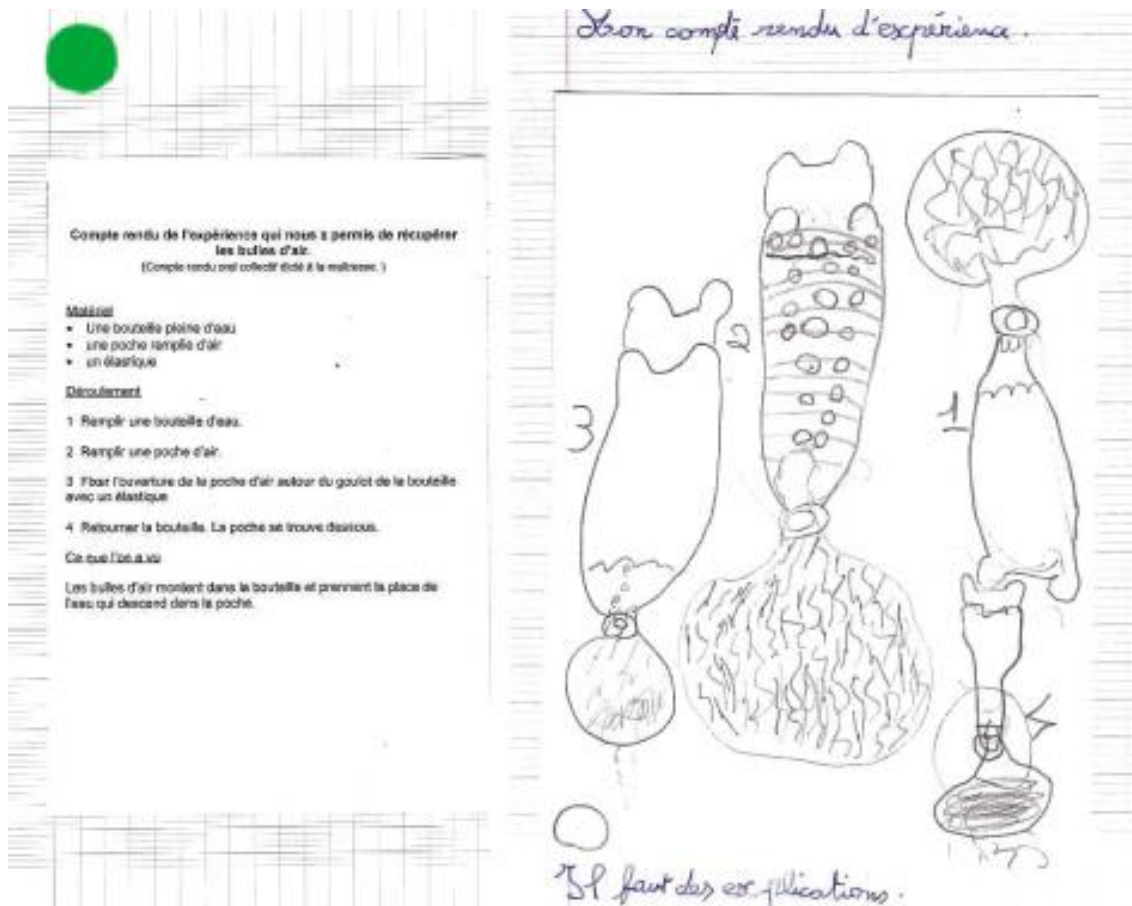 Compte rendu de l'expérience qui nous a permis de récupérer
les bulles d'air.
(Compte rendu oral collectif dicté à la maîtresse. )
Matériel
• Une bouteille pleine d'eau
• une poche remplie d'air
• un élastique
Déroulement
1 Remplir une bouteille d'eau.
2 Remplir une poche d'air.
3 Fixer l'ouverture de la poche d'air autour du goulot de la bouteille
avec un élastique
4 Retourner la bouteille. La poche se trouve dessous.
Ce que l'on a vu
Les bulles d'air montent dans la bouteille et prennent la place de
l'eau qui descend dans la poche.
Mon compte rendu d'expérience.
3
2
1
Il faut des explications.